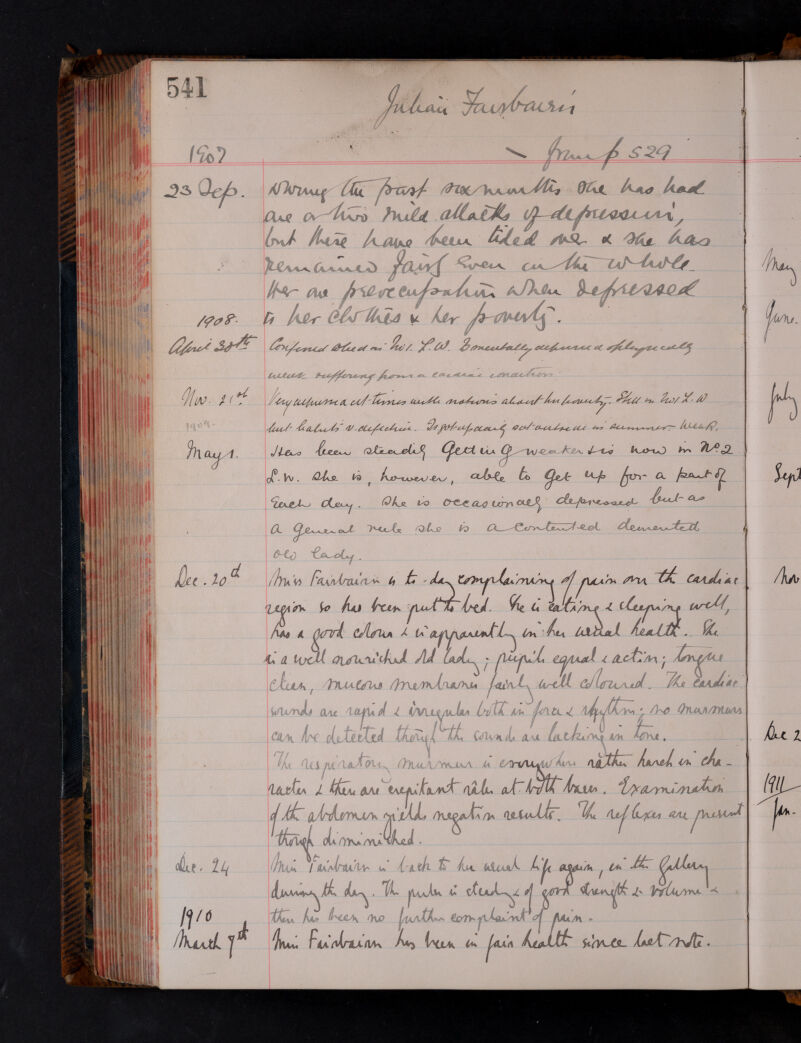 541
Julian Fairbairn
1907
from p 529
23 Sep. During the past six months she has had
one or two mild attacks of depression,
but these have been tided over & she has
remained fairly even on the whole.
Her one preoccupation when depressed
1908. to her clothes & her poverty.
April 30th Confined to bed in No 1. L.W. Is mentally depressed & physically
weak suffering from a cardiac condition
Nov. 21st Very depressed at times with notions about her poverty. Still in No 1 L.W
1909.
but habits v. defective. Is got up daily & out outside in summer - weak.
May 1. Has been steadily getting weaker & is now in No 2
L.W. She is, however, able to get up for a part of
each day. She is occasionally depressed but as
a general rule she is a contented demented
old lady.
Dec. 20th Miss Fairbairn is to-day complaining of pain over the cardiac
region so has been put to bed. She is eating & sleeping well,
has a good colour & is apparently in her usual health. She
is a well nourished old lady; pupils equal & active; tongue
clean, mucous membranes fairly well coloured. The cardiac
sounds are rapid & irregular both in force & rhythm; no murmurs
can be detected though the sounds are lacking in tone.
The respiratory murmur is everywhere rather harsh in cha-
racter & there are crepitant râles at both bases. Examination
of the abdomen yields negative results. The reflexes are present
though diminished.
Dec. 24 Miss Fairbairn is back to her usual life again, in the Gallery
during the day. The pulse is steady & of good strength & volume &
1910 there has been no further complaint of pain.
March 7th Miss Fairbairn has been in fair health since last note.
May
June.
July
Sept
Nov
Dec 2
1911
Jan.